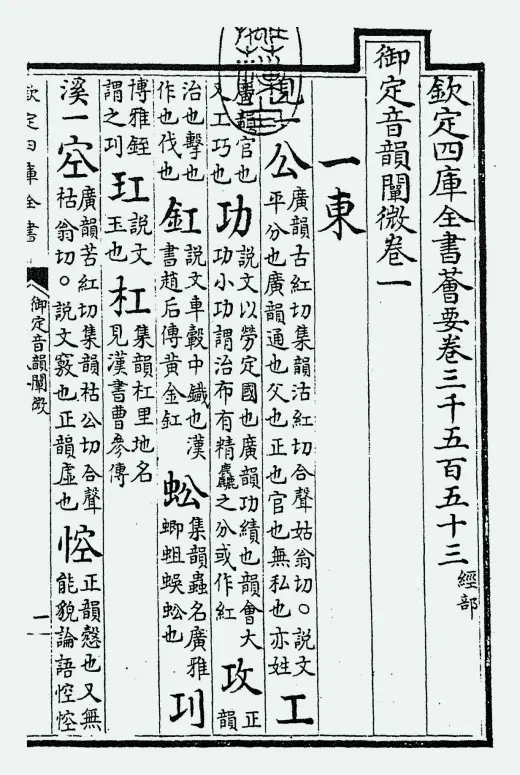 欽定四庫全書薈要卷三千五百五十三 經部
御定音韻闡微卷一
一東
見一公 廣韻古紅切集韻沽紅切合聲姑翁切○說文平分也廣韻通也父也正也官也無私也亦姓 工
廣韻官也又工巧也 功 說文以勞定國也廣韻功績也韻會大功小功謂治布有精麤之分或作紅 攻 正韻
治也擊也作也伐也 釭 說文車轂中鐵也漢書趙后傳黃金釭 蚣 集韻蟲名廣雅蝍蛆蜈蚣也 刊
博雅銍謂之刊 玒 說文玉也 杠 集韻杠里地名見漢書曹參傳
溪一空 廣韻苦紅切集韻枯公切合聲枯翁切○說文竅也正韻虛也 悾 正韻慤也又無能貌論語悾悾
欽定四庫全書
御定音韻闡微
一